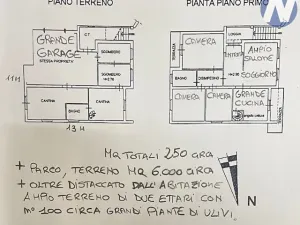 PIANO TERRENO
PIANTA PIANO PRIMO
N
GRANDE
GARAGE
STESSA PROPRIETA'
C.T.
SGOMBERO
SGOMBERO
H=2.70
CANTINA
BAGNO
CANTINA
11M
13M
TERRAZZA
CAMERA
LOGGIA
AMPIO
SALONE
SOGGIORNO
BAGNO
DISIMPEGNO
H=2.70
CAMERA
CAMERA
GRANDE
CUCINA
TERRAZZA
MQ TOTALI 250 CIRCA
+ PARCO, TERRENO MQ 6.000 CIRCA
+ OLTRE DISTACCATO DALL'ABITAZIONE
AMPIO TERRENO DI DUE ETTARI CON
N° 100 CIRCA GRANDI PIANTE DI ULIVI.
N